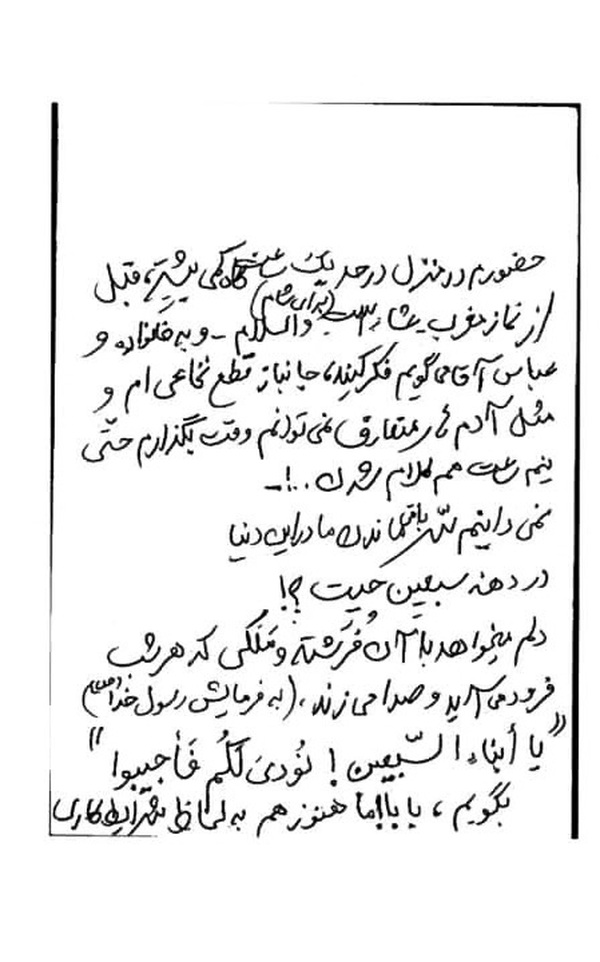 حضورم در منزل در حد یک ساعت گاه کمی بیشتر، قبل
از نماز مغرب و عشاء است (برای شام) والسلام - و به خانواده و
عباس آقا می گویم فکر کنید، جانباز قطع نخاعی ام و
مثل آدم های متعارف نمی توانم وقت بگذارم حتّی
نیم ساعت هم کلام شدن ..!-
نمی دانیم سّر باقیماندن ما در این دنیا
در دهنه سبعین چیست ؟!
دلم میخواهد به آن فُرشته و مَلَکی که هر شب
فرود می آید و صدا می زند، (به فرمایش رسول خدا (ص))
"یا أبناء السّبعین ! نُودیَ لَکُم فَأجیبوا"
بگویم، بابا ما هنوز هم به لحاظ شرایط کاری